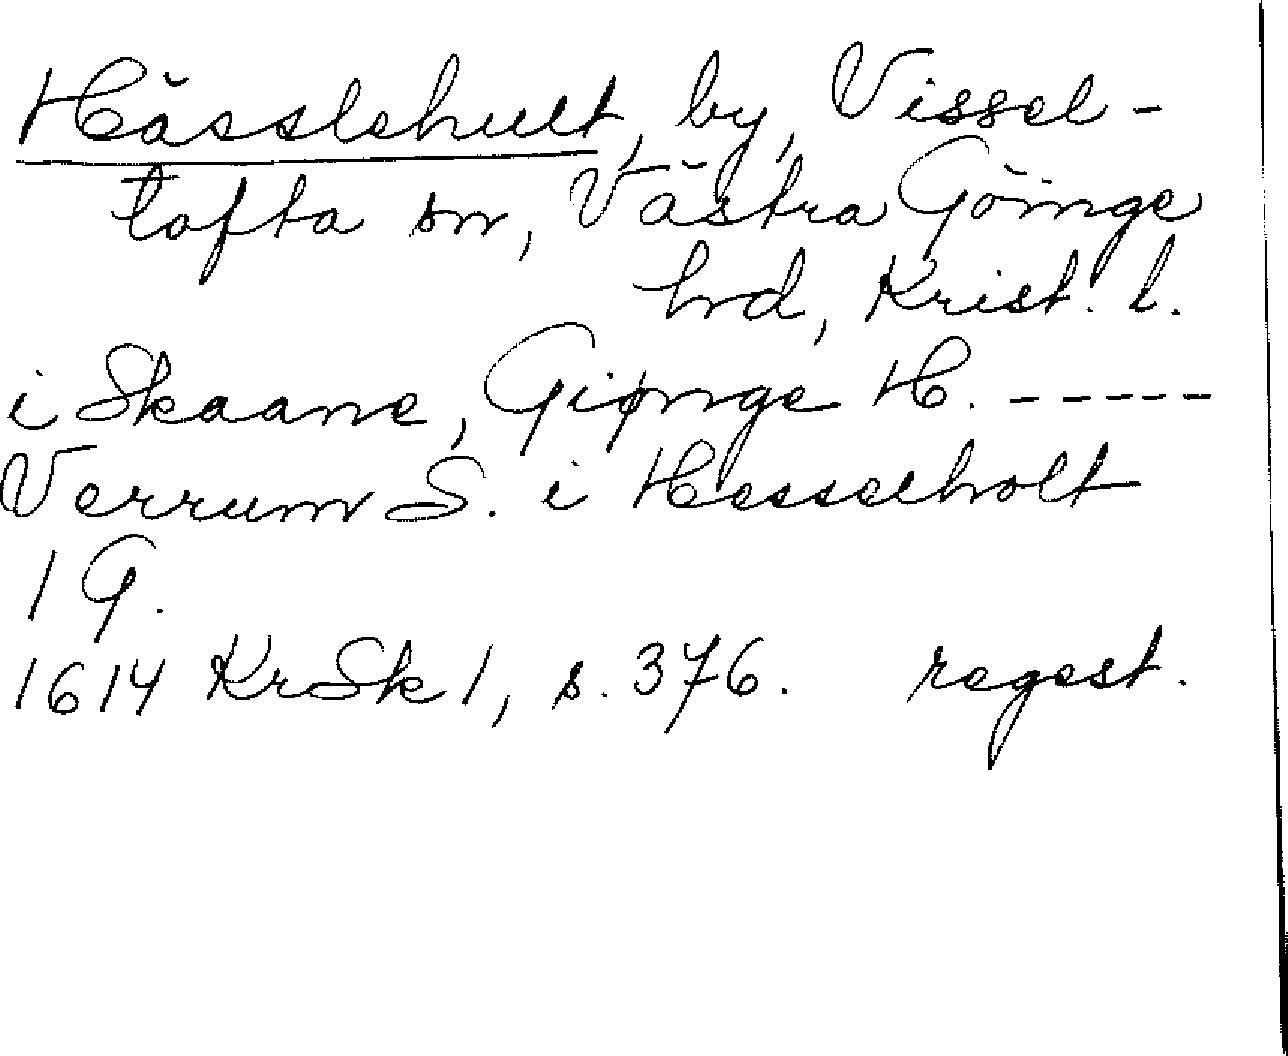 Hässlehult, by, Vissel-
tofta sn, Västra Göinge
hrd, Krist. l.
i Skaane, Giønge H. -----
Verrum S. i Hesselholt
1 G.
1614 KrSk 1, s. 376. regest.